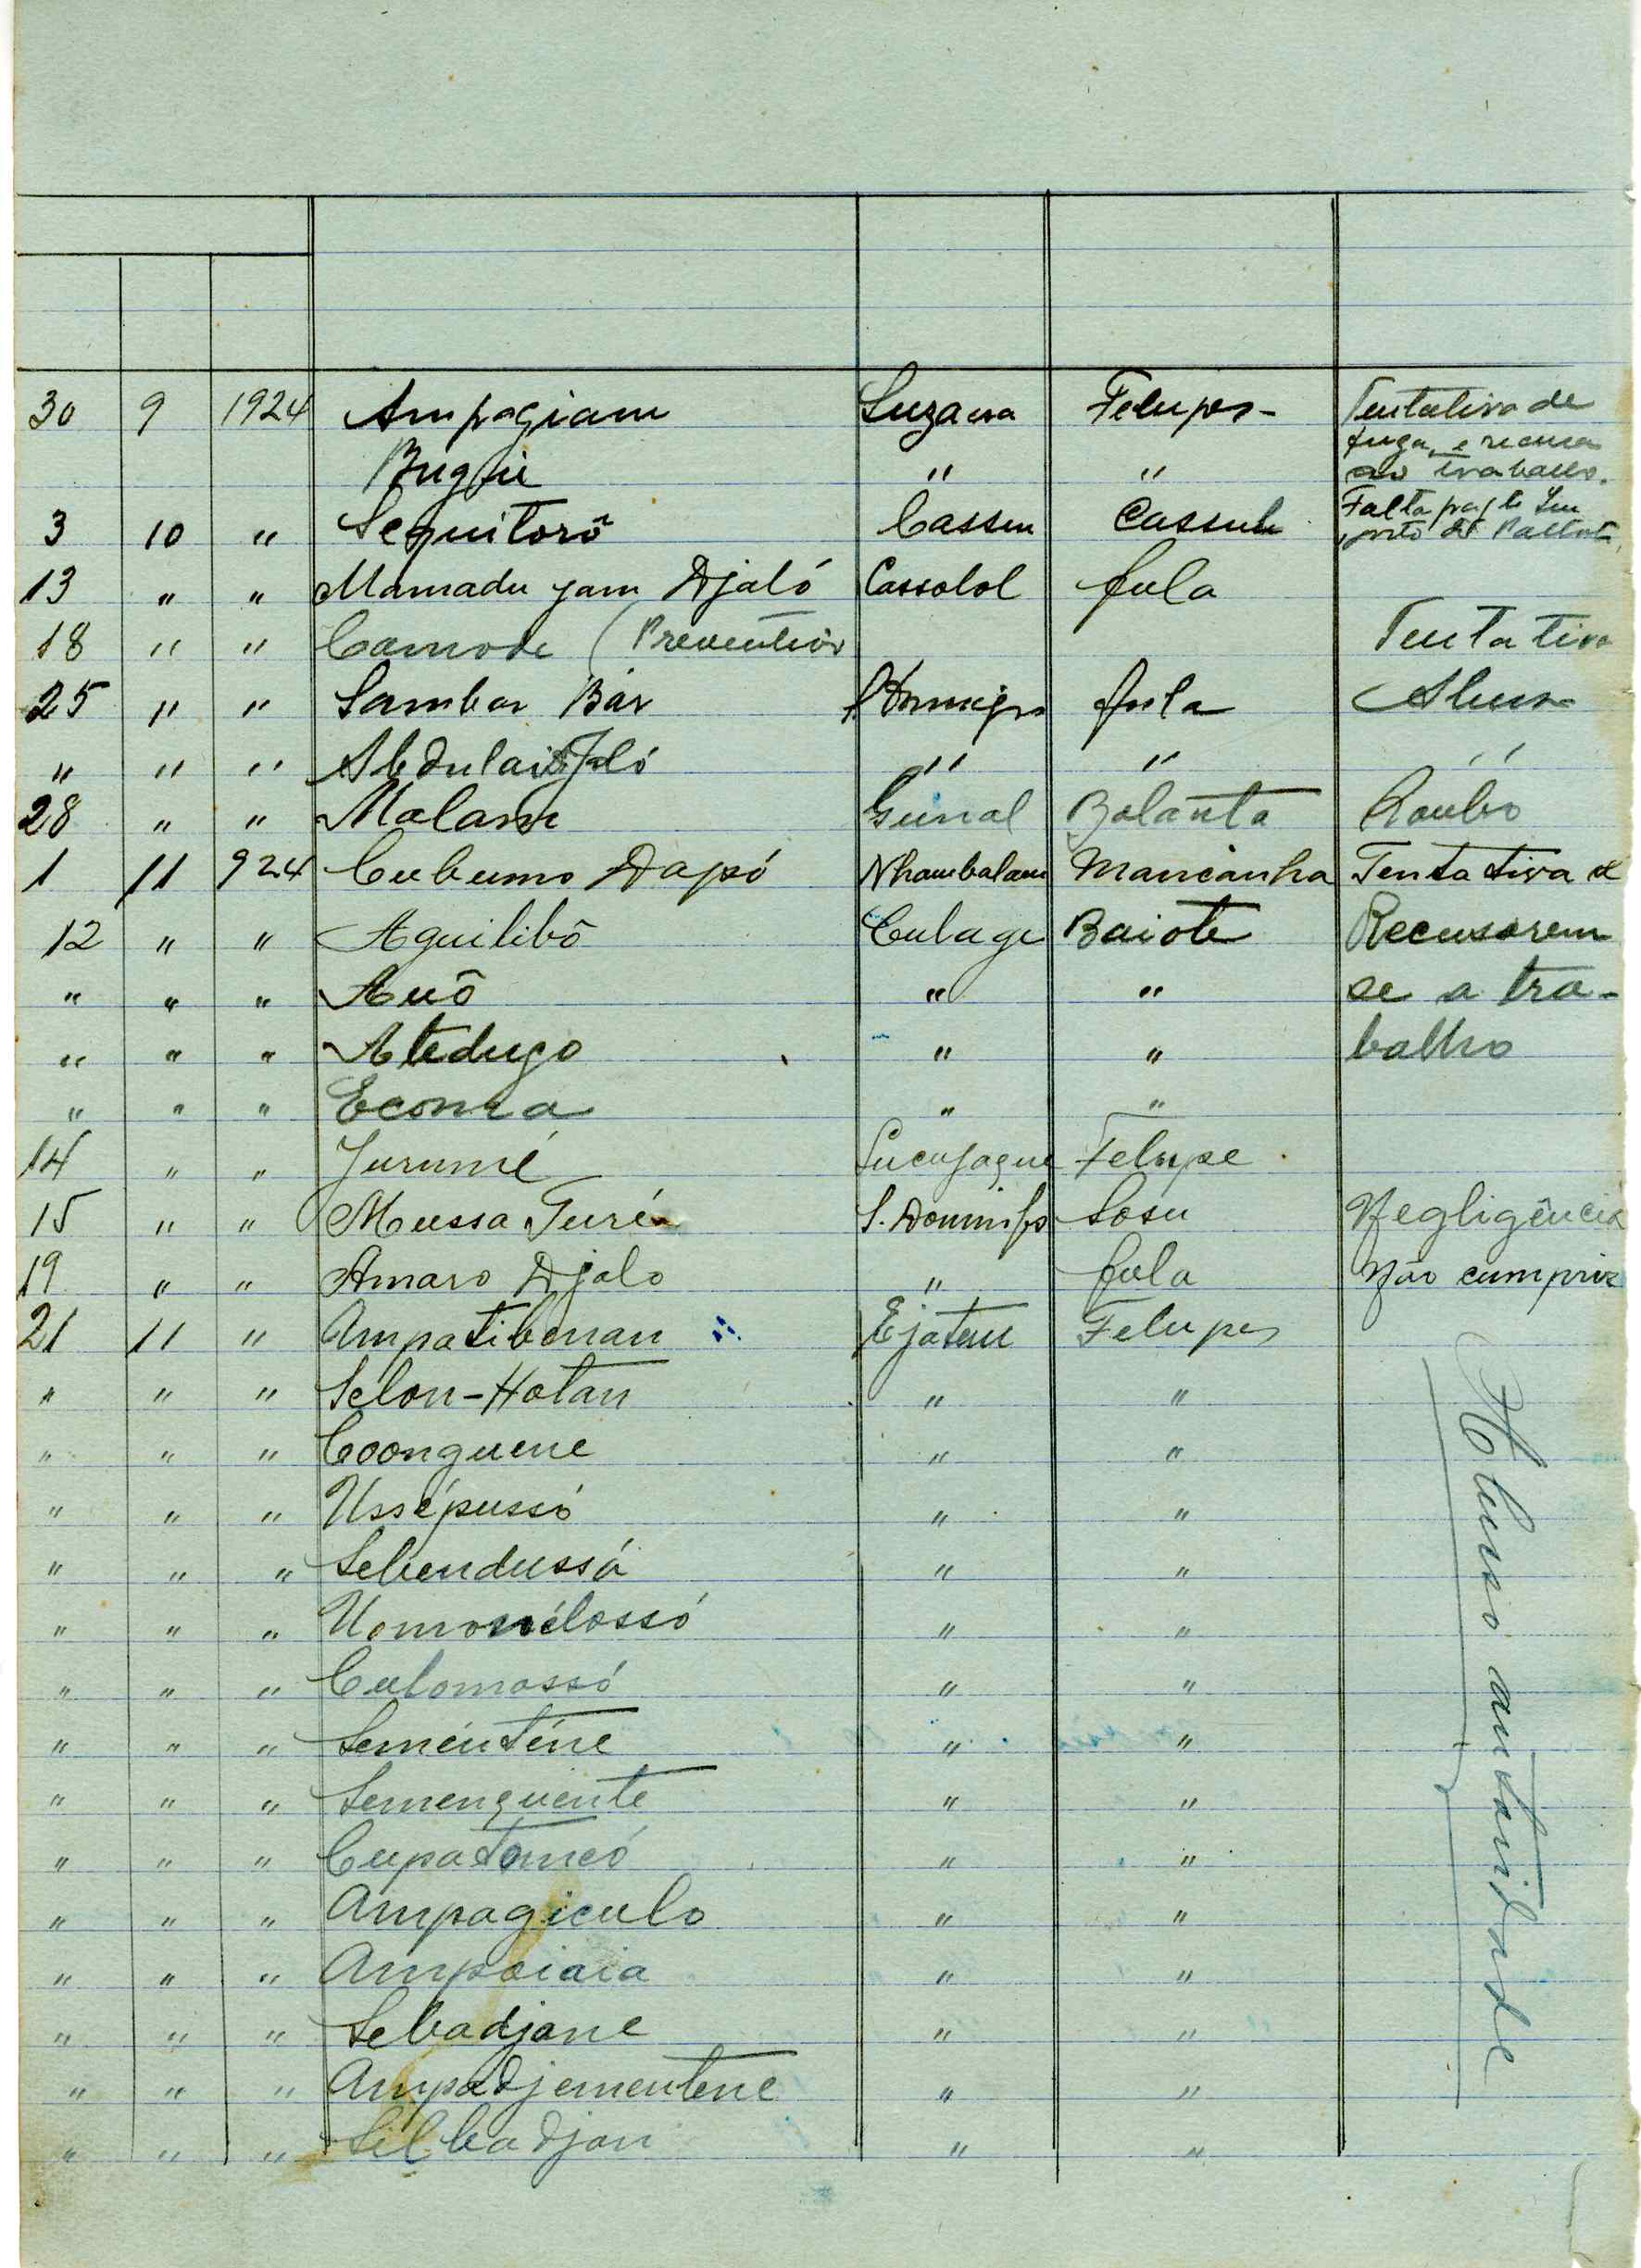 30 9 1924 Ampagiam Suzana Felupes - Tentativa de
fuga, e recusa
Bugüe " " ao trabalho.
3 10 " Sequitorô Cassu Cassub Falta pag to Im
posto de Palhota
13 " " Mamadu jam Djaló Cassolol fula
18 " " Camode (Preventivo Tentativa
25 " " Sambar Bar fula Abuso
" " " Abdulai Jaló " " "
28 " " Malam Guinal Balanta Roubo
1 11 924 Cubumo Dapó Nhambalam Mancanha Tentativa d
12 " " Aguilibô Culage Baiote Recusarem
" " " Auô " " se a tra-
" " " Atedugo " " balho
" " " Econia " "
14 " " Jurumé Sucujaque Felupe
15 " " Mussa Turé S. Domingos Sosu Negligência
19 " " Amaro Djalo " fula Não cumprir
21 11 " Ampatibenan Ejaten Felupes
" " " Selon-Hotan " "
" " " Coonguene " "
" " " Ussépussó " "
" " " Sebendussó " "
" " " Uomonélossó " "
" " " Culomossó " "
" " " Seménténe " "
" " " Semenquente " "
" " " Cupatomeó " "
" " " Ampagiculo " "
" " " Ampaiaia " "
" " " Sebadjane " "
" " " Ampadjementene " "
" " " Silbadjan " "
Abuso autoridade